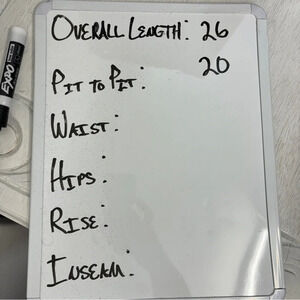 OVERALL LENGTH: 26
PIT TO PIT: 20
WAIST:
HIPS:
RISE:
INSEAM:
EXPO